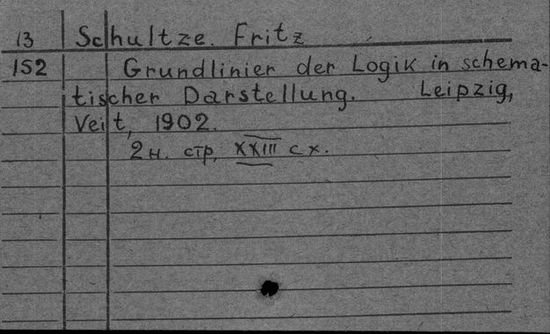 13 Schultze. Fritz
152 Grundlinier der Logik in schema-
tischer Darstellung. Leipzig,
Veit, 1902.
2 н. стр, XXIII сх.